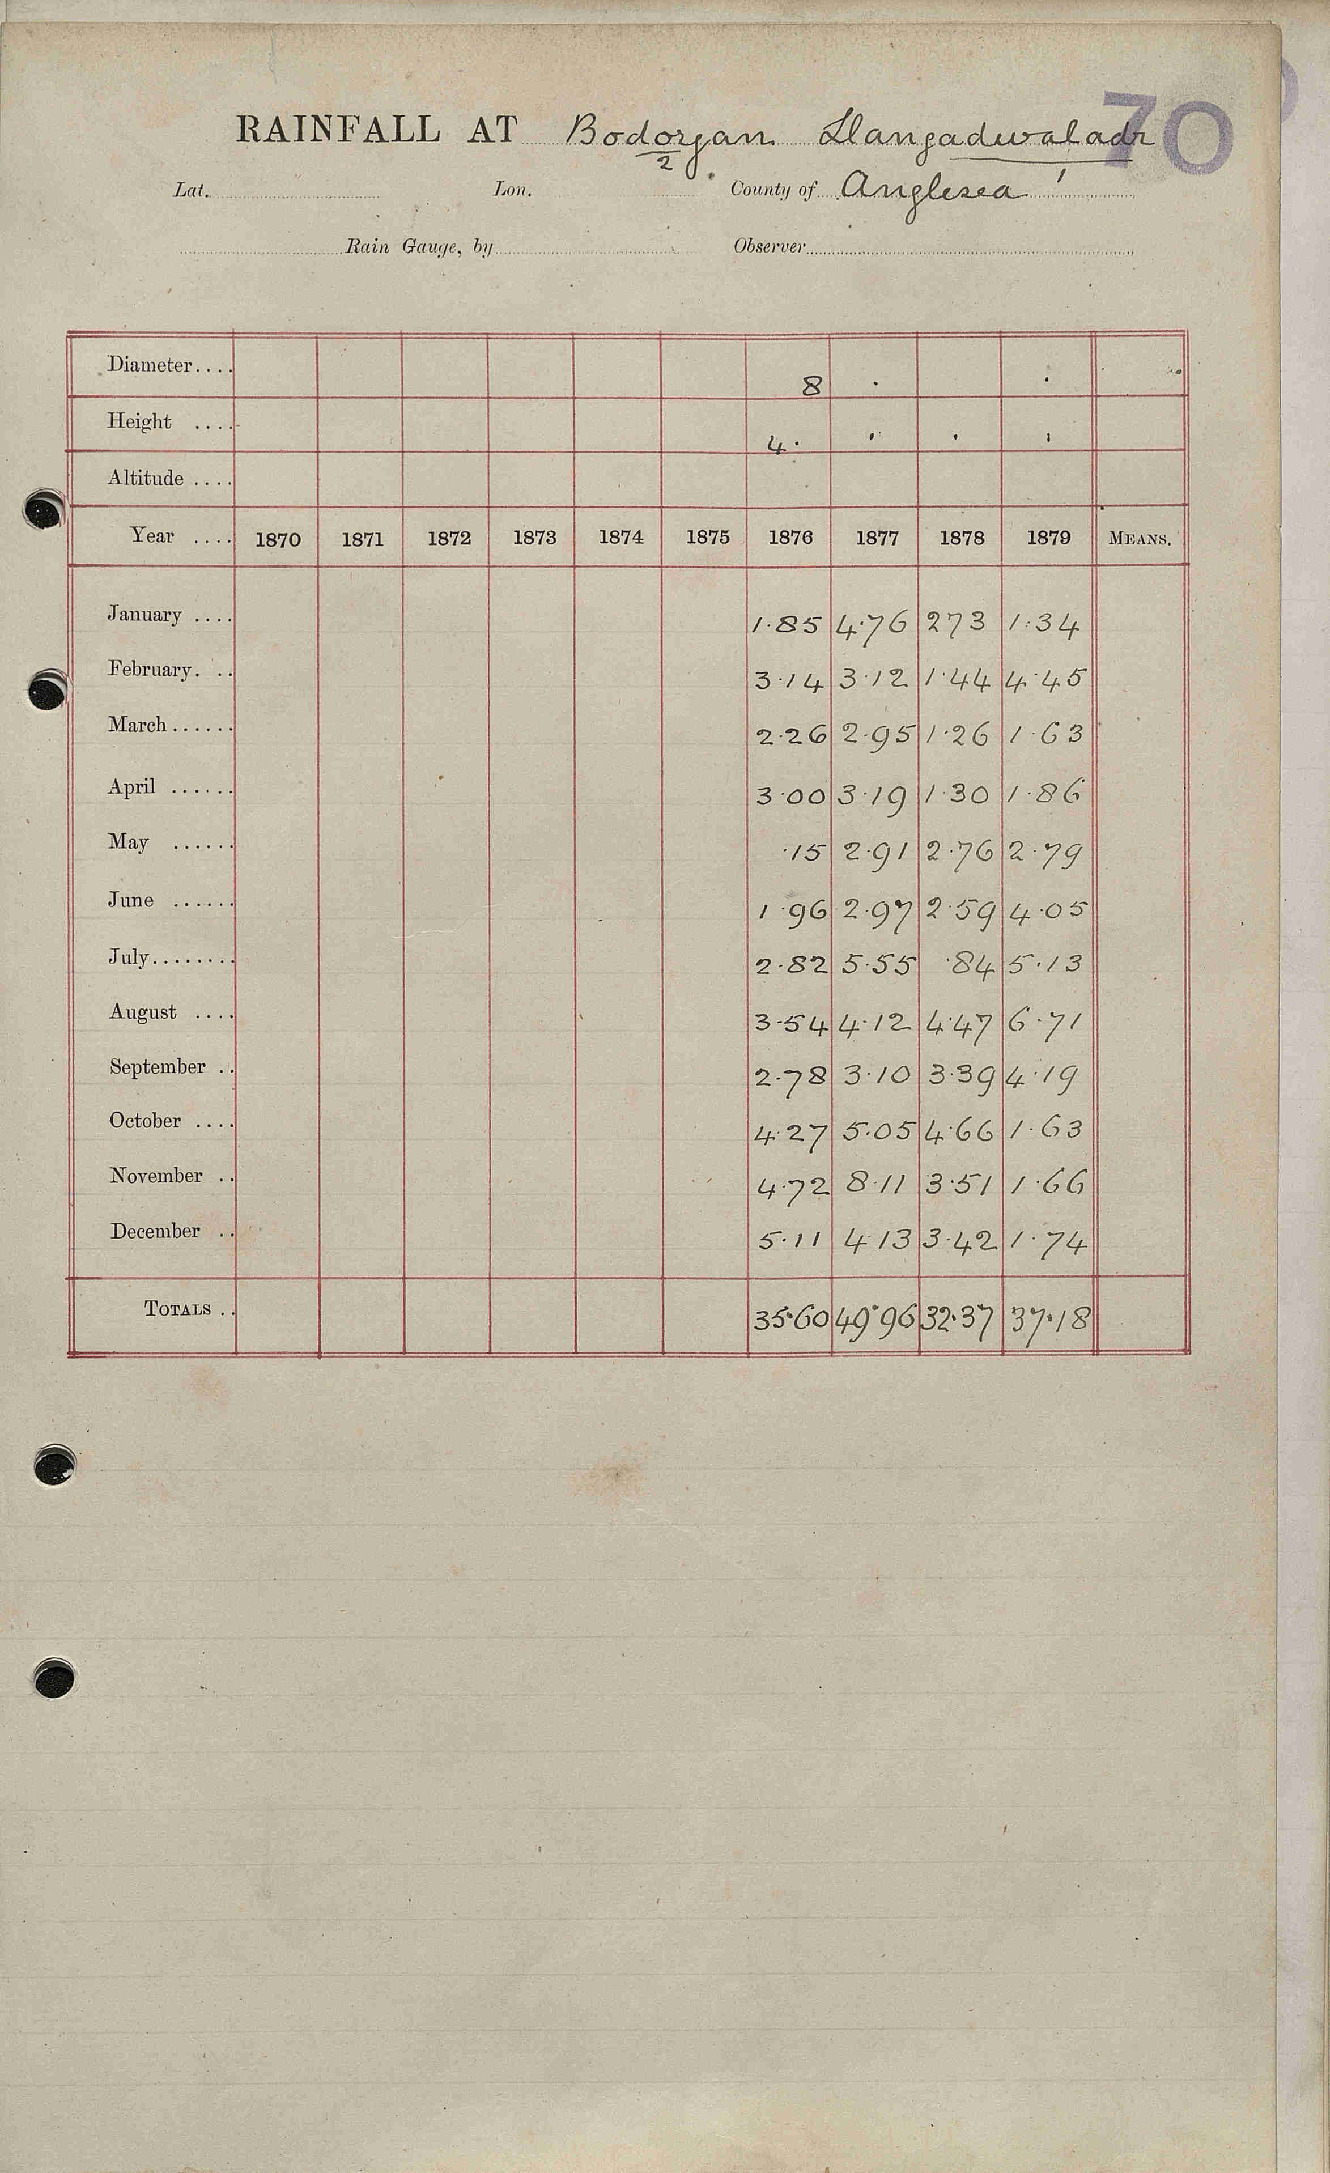 70
RAINFALL AT Bodorgan Llangadwaladr
2 1
Lat. Lon. County of Anglesea
Rain Gauge, by Observer
Diameter.... 8
Height .... 4
Altitude ....
Year .... 1870 1871 1872 1873 1874 1875 1876 1877 1878 1879 MEANS.
January .... 1.85 4.76 2 73 1.34
February. .. 3.14 3.12 1.44 4.45
March...... 2.26 2.95 1.26 1.63
April ...... 3.00 3.19 1.30 1.86
May ...... .15 2.91 2.76 2.79
June ...... 1.96 2.97 2.59 4.05
July........ 2.82 5.55 .84 5.13
August .... 3.54 4.12 4.47 6.71
September .. 2.78 3.10 3.39 4.19
October .... 4.27 5.05 4.66 1.63
November .. 4.72 8.11 3.51 1.66
December .. 5.11 4 13 3.42 1.74
TOTALS .. 35.60 49.96 32.37 37.18